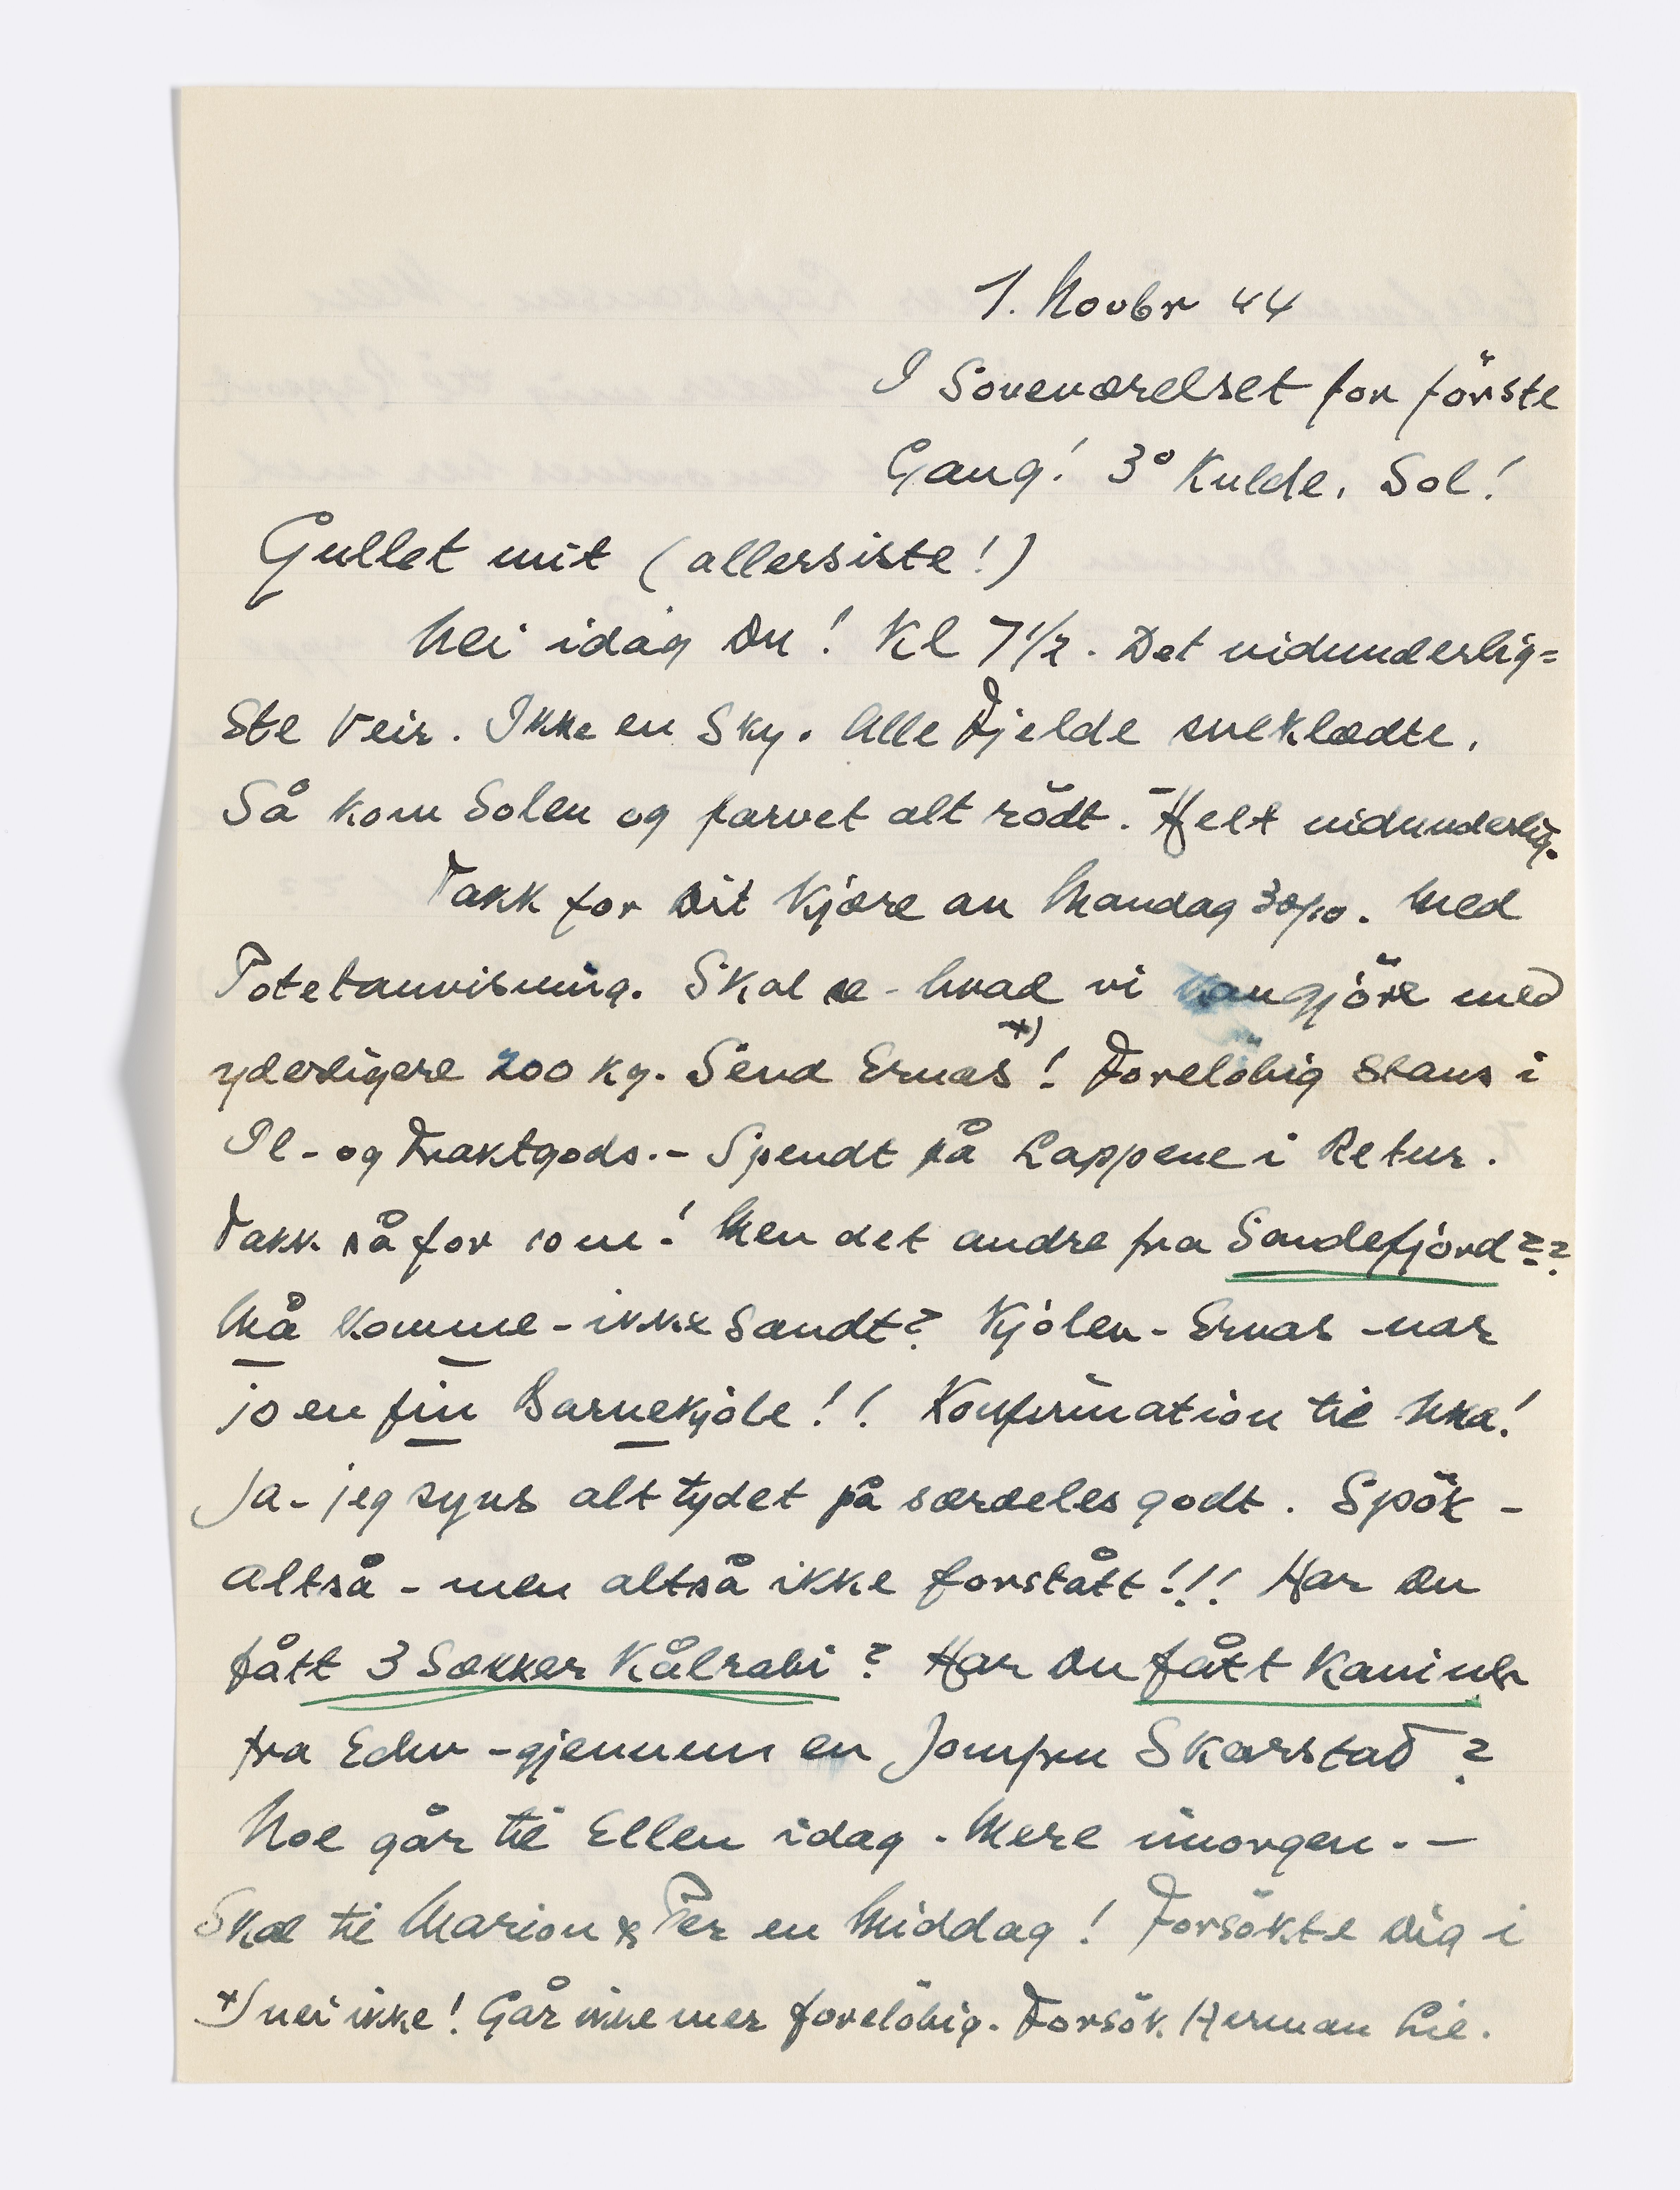 1. Novbr 44
I Soveværelset for förste
Gang! 3° Kulde. Sol!
Gullet mit (allersiste!)
Nei idag Du! Kl 7 1/2. Det vidunderlig=
ste Veir. Ikke en Sky. Alle Fjelde sneklædte.
Så kom Solen og farvet alt rödt. - Helt vidunderlig.
Takk for Dit Kjære av Mandag 30/10. Med
Potetanvisning. Skal se - hvad vi kan gjöre med
yderligere 200 kg. Send Ernas +)! Forelöbig Stans i
Il- og Fraktgods. - Spendt på Lappene i Retur.
Takk så for 10 m! Men det andre fra Sandefjord??
Må komme - ikke sandt? Kjolen - Ernas - var
jo en fin Barnekjole!! Konfirmation til Mka!
Ja - jeg syns alt tydet på særdeles godt. Spök -
altså - men altså ikke forstått!!! Har Du
fått 3 Sækker Kålrabi? Har Du fått Kanink
fra Edw - gjennem en Jomfru Skarstad?
Noe går til Ellen idag. Mere imorgen. -
Skal til Marion & Per en Middag! Forsökte Dig i
+) nei ikke! Går ikke mer forelöbig. Forsök Herman Lie.